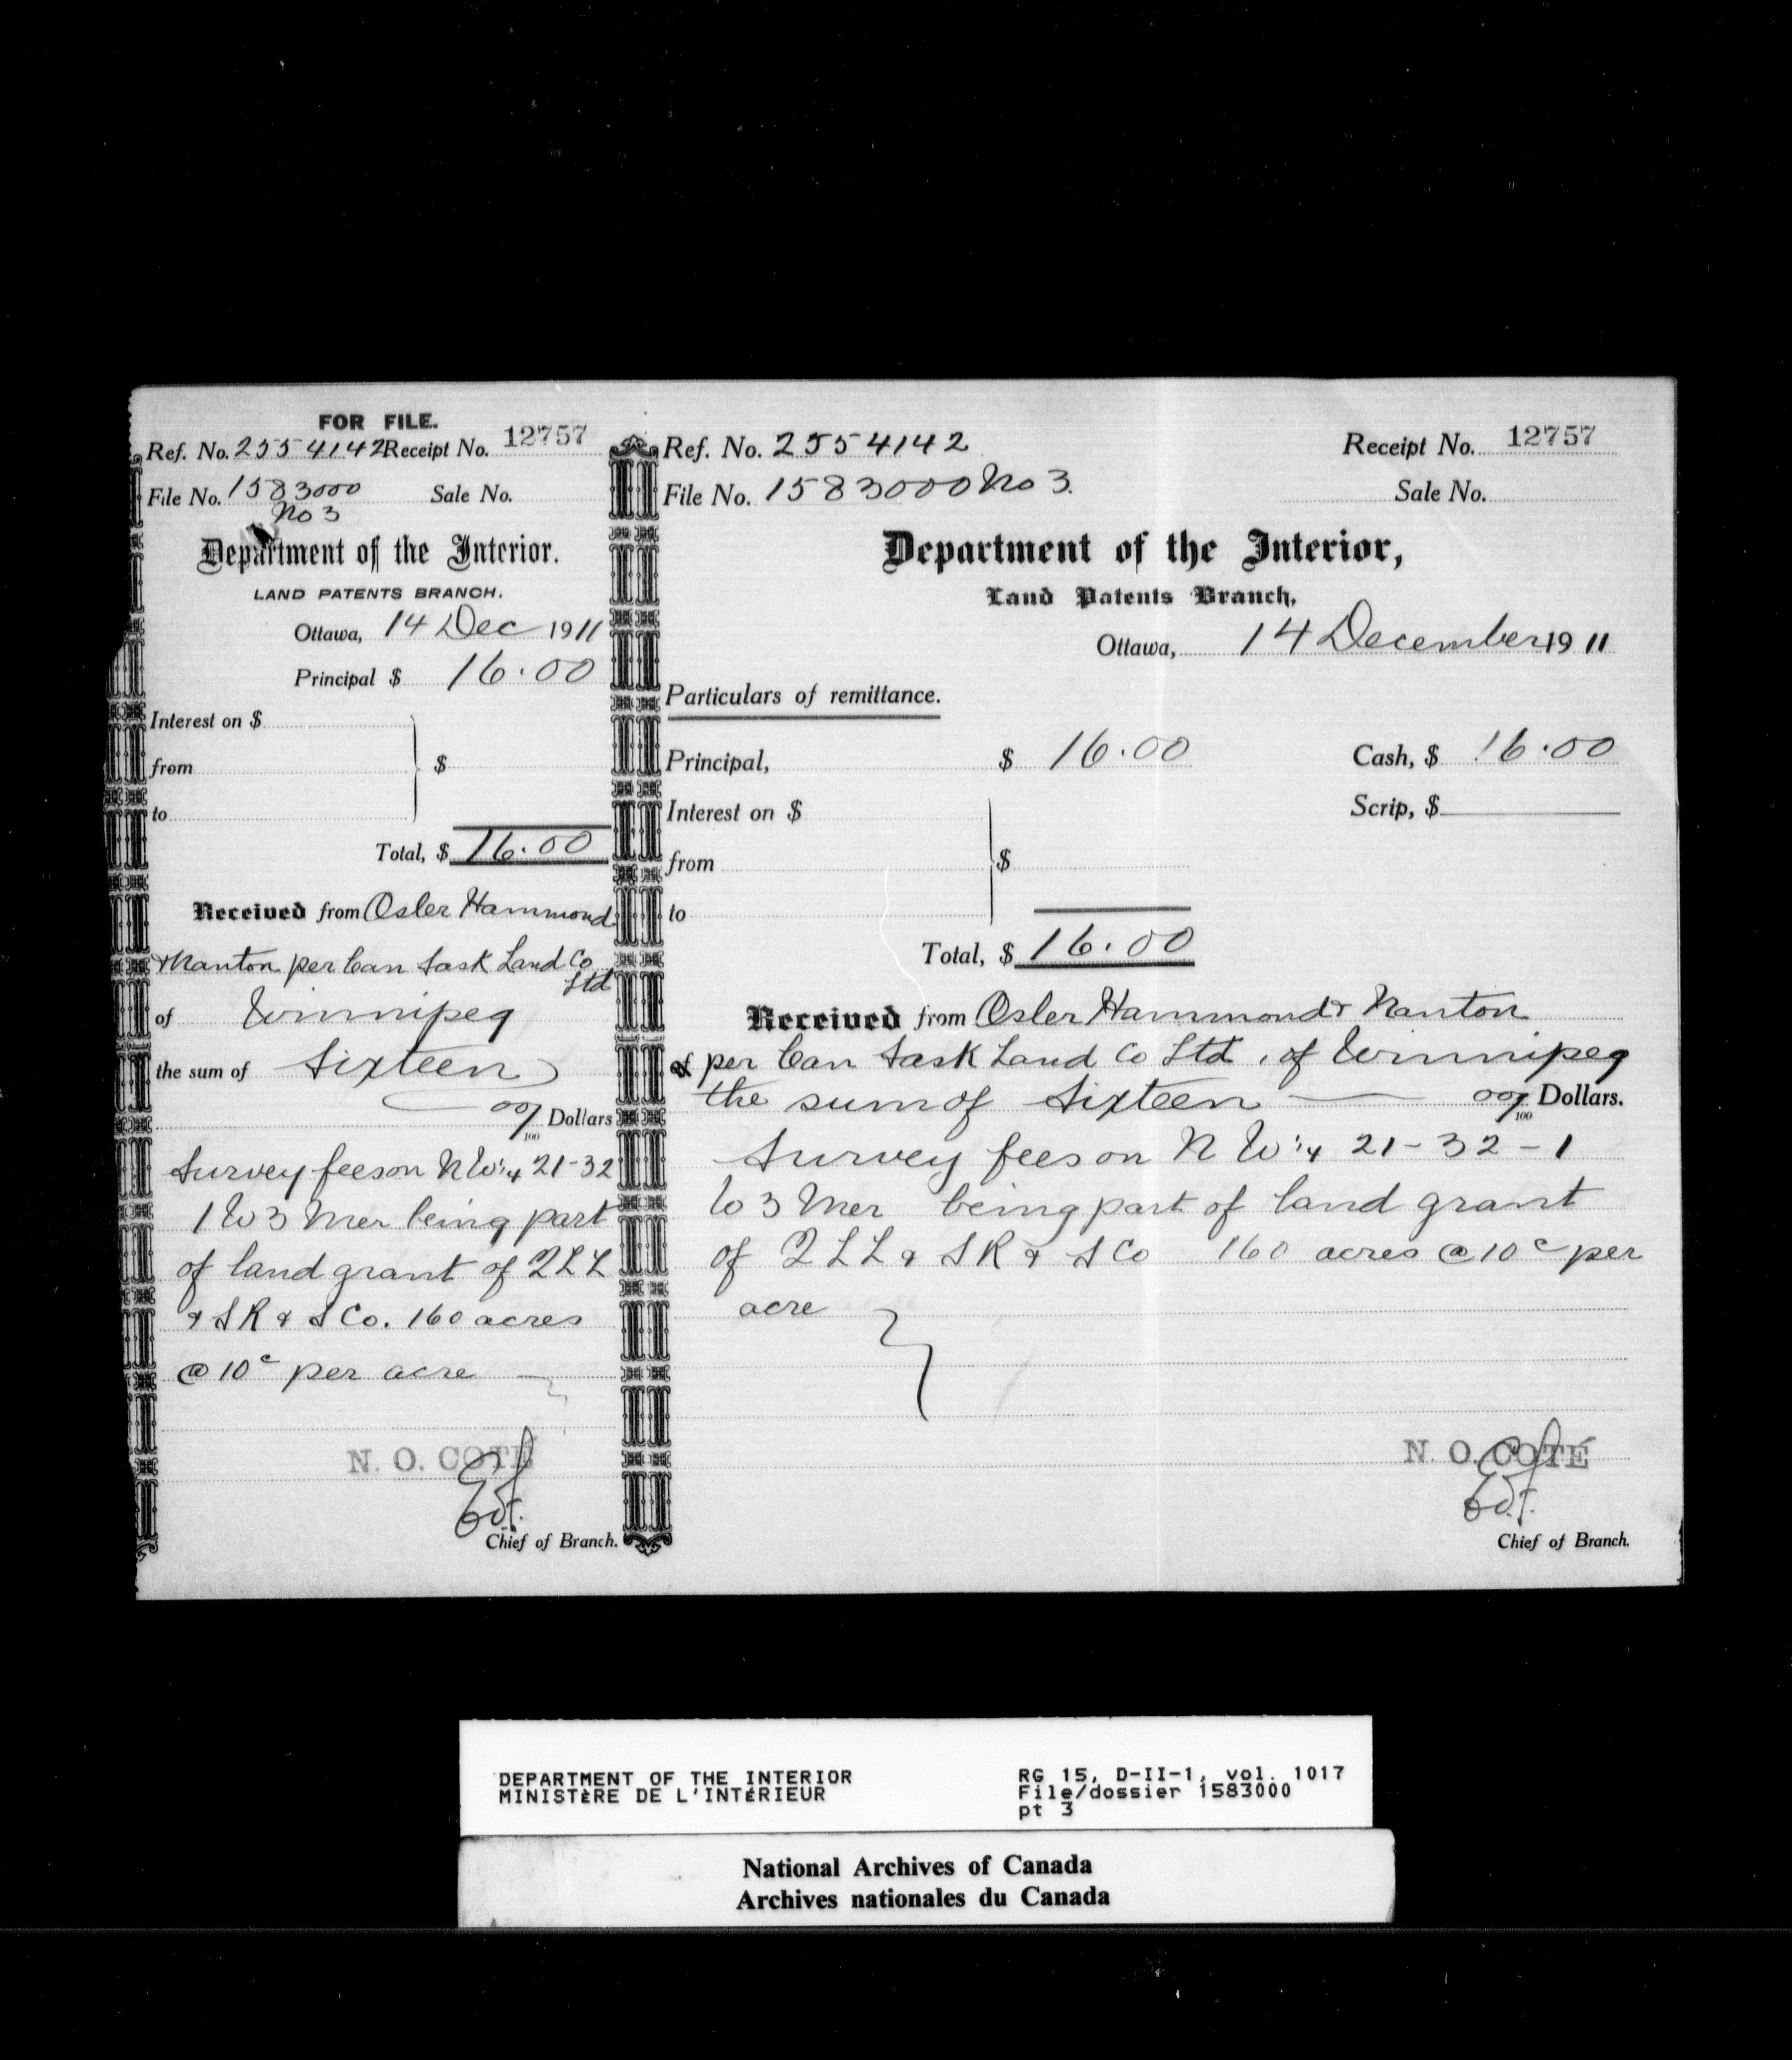 FOR FILE.
Ref. No. 2554142 Receipt No. 12757
File No. 1583000 Sale No.
No 3
Department of the Interior.
LAND PATENTS BRANCH.
Ottawa, 14 Dec 1911
Principal $ 16.00
Interest on $
from $
to
Total, $ 16.00
Received from Osler Hammond
& Nanton per Can Sask Land Co
Ltd
of Winnipeg
the sum of Sixteen
00/100 Dollars
Survey fees on N W 1/4 21-32
1 W 3 Mer being part
of land grant of Q L L
& S R & S Co. 160 acres
@ 10c per acre
N. O. COTÉ
Chief of Branch.
Ref. No. 2554142 Receipt No. 12757
File No. 1583000 No 3. Sale No.
Department of the Interior,
Land Patents Branch,
Ottawa, 14 December 1911
Particulars of remittance.
Principal, $ 16.00 Cash, $ 16.00
Interest on $ Scrip, $
from $
to
Total, $ 16.00
Received from Osler Hammond & Nanton
of per Can Sask Land Co Ltd, of Winnipeg
the sum of Sixteen 00/100 Dollars.
Survey fees on N W 1/4 21-32-1
W 3 Mer being part of land grant
of Q L L & S R & S Co 160 acres @ 10c per
acre
N. O. COTÉ
Chief of Branch.
DEPARTMENT OF THE INTERIOR RG 15, D-II-1, vol. 1017
MINISTÈRE DE L'INTÉRIEUR File/dossier 1583000
pt 3
National Archives of Canada
Archives nationales du Canada